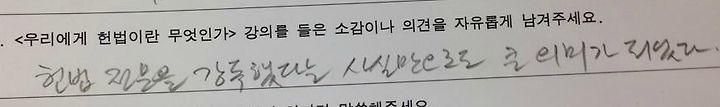 . <우리에게 헌법이란 무엇인가> 강의를 들은 소감이나 의견을 자유롭게 남겨주세요.
헌법 전문을 강독했다는 사실만으로도 큰 의미가 되었다.